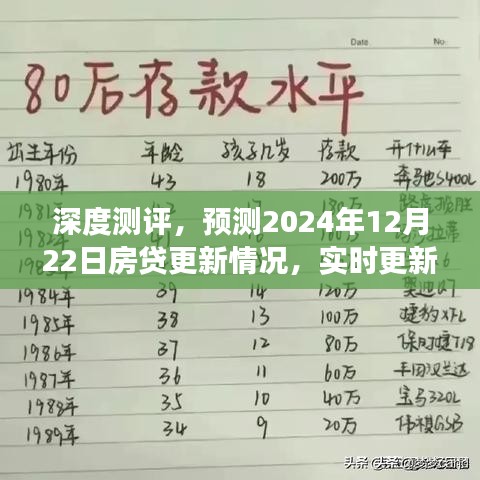 Date. No.
80后存款水平
出生年份 年龄 孩子几岁 存款 开什么车
1980年 43 18 200万 奔驰S400L
深度测评，预测2024年12月
22日房贷更新情况，实时更新
1984年 39 14 120万 奥迪Q7
1985年 38 13 100万 捷豹XFL
1986年 37 12 80万 保时捷718
1987年 36 11 60万 丰田汉兰达
1988年 35 10 40万 宝马320L
1989年 34 9 20万 传祺GS8
头条